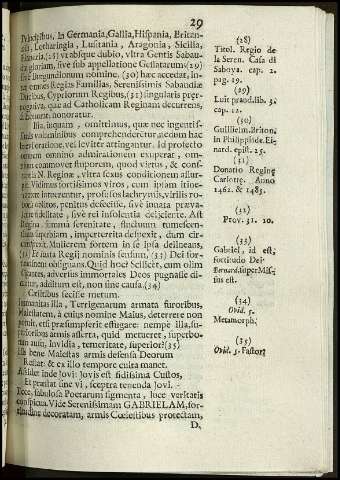 29
Principibus, In Germania, Gallia, Hispania, Britan-
Lotharingia, Lusitania, Aragonia, Sicilia,
(26) vt absque dubio, vltra Gentis Sabau-
sive sub appellatione Gestatarum (29)
Burgundionum nomine. (30) hæc accedat, in-
Regias Familias, Serenissimis Sabaudiæ
Ducibus, Cypriorum Regibus, (31) singularis præ-
quæ ad Catholicam Reginam decurrens,
honoratur.
Illa, inquam, omittimus, quæ nec ingenti-
voluminibus comprehenderetur, nedum hac
vel leviter attingantur. Id protecto
omnino admirationem exuperat, om-
commovet stuporem, quod virtus, & con-
N. Reginæ, vltra sexus conditionem assur-
Vidimus fortissimos viros, cum ipsam itine-
intercepta, profusos lachrymis, virilis ro-
oblitos, penitus defecisse, sive innata prava-
infidelitate, sive rei insolentia dejiciente. Ast
Regina summa serenitate, fluctuum tumescen-
superbiam, imperterrita despexit, dum cir-
Mulierem fortem in se ipsa delineans,
(32) Et iuxta Regij nominis sensum, (33) Dei for-
consignans. Quid hoc? Scilicet, cum olim
adversus immortales Deos pugnasse di-
additum est, non sine causa. (34)
Cælitibus fecisse metum.
Immanitas illa, Terrigenarum armata furoribus,
Maiestatem, à cuius nomine Maius, deterrere non
etsi præsumpserit estugare: nempe illa, su-
armis asserta, quid metueret, superbo-
ausu, invidia, temeritate, superior? (35)
bene Maiestas armis defensa Deorum
Restat: & ex illo tempore culta manet.
inde Jovi: Jovis est fidissima Custos,
Et præstat sine vi, sceptra tenenda Jovi.
fabulosa Poetarum figmenta, luce veritatis
conspicua. Vide Serenissimam GABRIELAM, for-
decoratam, armis Cœlestibus protectam,
D
(28)
Titol. Regio de
la Seren. Casa di
Saboya. cap. 2.
pag. 19.
(29)
Luit praod. lib. 3.
cap. 12.
(30)
Guillielm. Briton.
in Philippide. Ei-
nard. epist. 25.
(31)
Donatio Reginę
Carlottę. Anno
1462. & 1485.
(32)
Prov. 31. 10.
(33)
Gabriel, id est,
fortitudo Dei
Bernard. super Mis-
sus est.
(34)
Ovid. 5.
Metamorph.
(35)
Ovid. 5. Fastor.